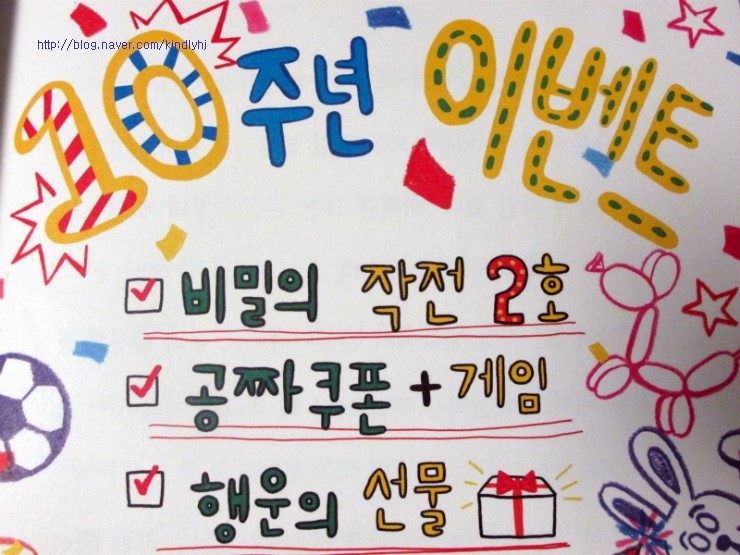 http://blog.naver.com/kindlyhj
10주년 이벤트
비밀의 작전 2호
공짜쿠폰 + 게임
행운의 선물